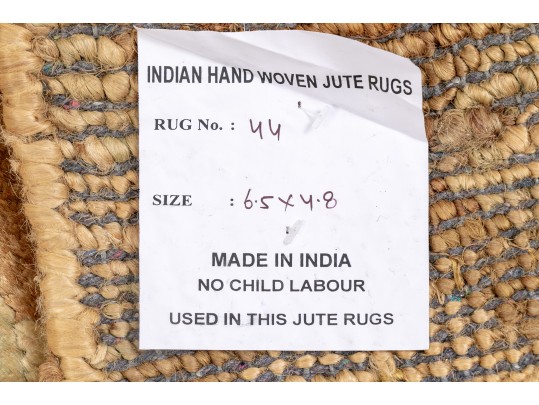 INDIAN HAND WOVEN JUTE RUGS
RUG No. : 44
SIZE : 6.5 x 4.8
MADE IN INDIA
NO CHILD LABOUR
USED IN THIS JUTE RUGS